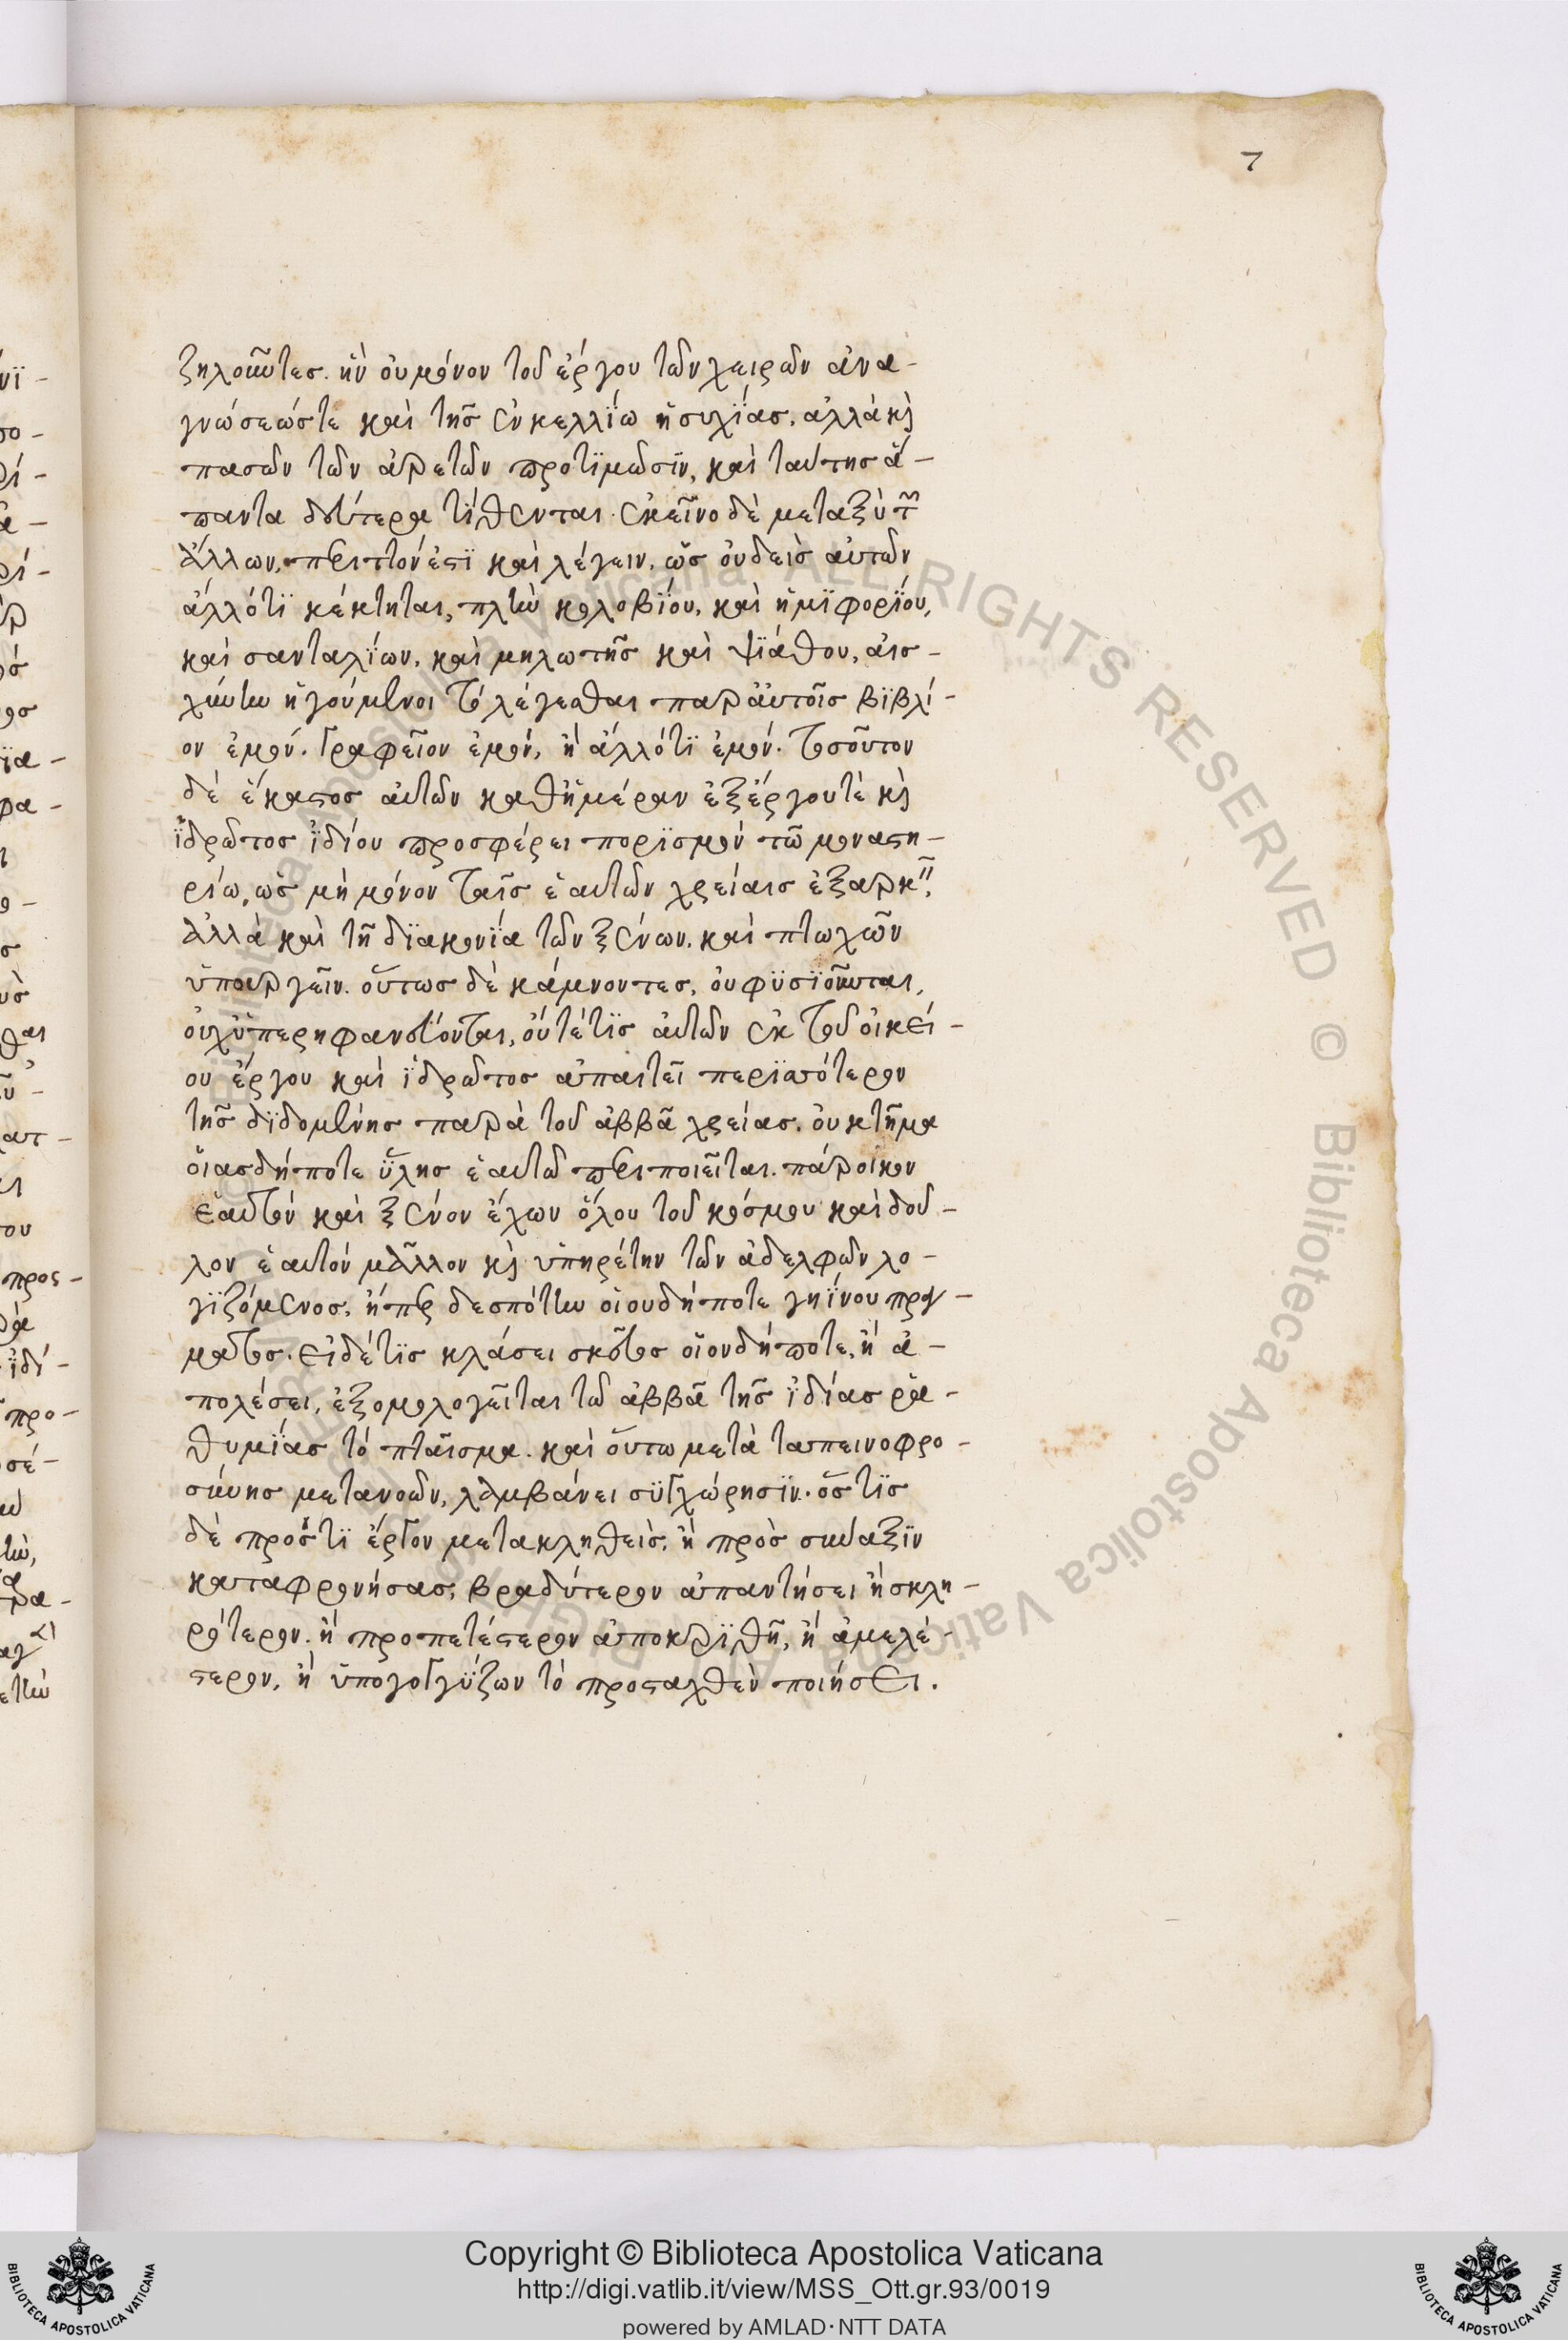 7
ζηλοῦντεσ. ἣν οὐ μόνον τοῦ ἔργου τῶν χειρῶν ἀνα-
γνώσεώστε καὶ τῆσ ἐν κελλίω ἡσυχίασ, ἀλλὰ κὶ
πασῶν τῶν ἀρετῶν προτιμῶσϊν, καὶ ταύτησ ἅ-
παντα δεύτερα τίθενται. ἐκεῖνο δὲ μεταξὺ τῶν
ἄλλων, περιττόν ἐστϊ καὶ λέγειν, ὡσ οὐδεὶσ αὐτῶν
ἄλλότϊ κέκτηται, πλὴν κολοβΐου, καὶ ἡμϊφορΐου,
καὶ σανταλΐων, καὶ μηλωτῆσ καὶ ψϊάθου, αἰσ-
χύνην ἡγούμενοι τὸ λέγεσθαι παρ' αὐτοῖσ βϊβλί-
ον ἐμόν. γραφεῖον ἐμόν, ἢ ἄλλότϊ ἐμόν. τοσοῦτον
δέ ἕκαστοσ αὐτῶν καθἡμέραν ἐξ ἔργου τὲ κὶ
ϊδρῶτοσ ϊδίου προσφέρει πορϊσμόν τῶ μοναστη-
ρίω, ὡσ μὴ μόνον ταῖσ ἑαυτῶν χρείαισ ἐξαρκεῖν,
ἀλλὰ καὶ τῆ δϊακονΐα τῶν ξένων, καὶ πτωχῶν
ὑπουργεῖν. οὕτωσ δὲ κάμνοντεσ, οὐ φϋσϊοῦνται,
οὐχ ὑπερηφανεύονται, οὔτέτϊσ αὐτῶν ἐκ τοῦ οἰκεί-
ου ἔργου καὶ ϊδρῶτοσ ἀπαιτεῖ περϊσσότερον
τῆσ δϊδομένησ παρὰ τοῦ ἀββᾶ χρείασ. οὐ κτῆμα
οἱασδήποτε ὕλησ ἑαυτῶ περιποιεῖται. πάροικον
ἑαυτὸν καὶ ξένον ἔχων ὅλου τοῦ κόσμου καὶ δοῦ-
λον ἑαυτόν μᾶλλον κὶ ὑπηρέτην τῶν ἀδελφῶν λο-
γϊζόμενοσ, ἤπερ δεσπότην οἱουδήποτε γηΐνου πρά-
ματοσ. εἰδέτϊσ κλάσει σκεῦοσ οἱονδήποτε, ἢ ἀ-
πολέσει, ἐξομολογεῖται τῶ ἀββᾶ τῆσ ϊδίασ ῥα-
θυμΐασ τὸ πταῖσμα. καὶ οὕτω μετὰ ταπεινοφρο-
σύνησ μετανοῶν, λαμβάνει σϋγχώρησϊν. ὅστϊσ
δὲ πρόστϊ ἔργον μετακληθεὶσ, ἢ πρὸσ σύναξϊν
καταφρονήσασ, βραδύτερον ἀπαντήσει ἢ σκλη-
ρότερον. ἢ προπετέστερον ἀποκρϊθῆ, ἢ ἀμελέ-
στερον, ἢ ὑπογογγΰζων τὸ προσταχθὲν ποιήσει.
Copyright © Biblioteca Apostolica Vaticana
http://digi.vatlib.it/view/MSS_Ott.gr.93/0019
powered by AMLAD·NTT DATA